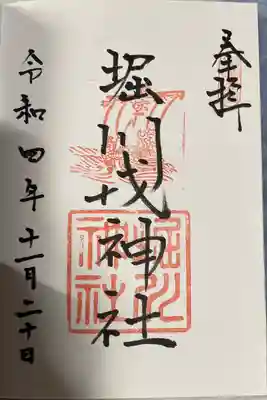 奉拝
堀川戎神社
堀川
神社
令和四年十一月二十日